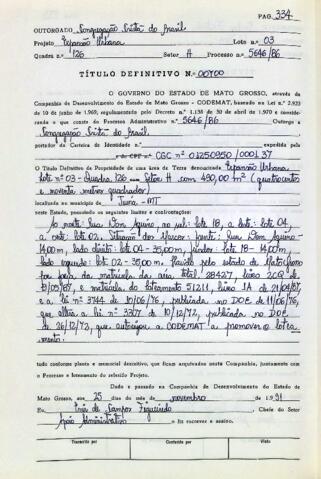 PAG. 334
OUTORGADO Congregação Cristã do Brasil
Projeto Expansão Urbana Lote n.o 03
Quadra n.o 126 Setor H Processo n.o 5646/86
TÍTULO DEFINITIVO N.o 00700
O GOVERNO DO ESTADO DE MATO GROSSO, através da
Companhia de Desenvolvimento do Estado de Mato Grosso - CODEMAT, baseado na Lei n.o 2.925
de 10 de junho de 1969, regulamentado pelo Decreto n.o 1.138 de 30 de abril de 1970 e consta-
tando o que consta do Processo Administrativo n.o 5646/86 Outorga a
Congregação Cristã do Brasil.
portador da Carteira de Identidade n.o
e CPF n.o CGC nº 01250950/0001 37
O Título Definitivo de Propriedade de uma área de Terra denominada Expansão Urbana
Lote nº 03 - Quadra 126 - Setor H com 490,00 m² (quatrocentos
e noventa metros quadrados)
localizada no município de Juína - MT
neste Estado, possuindo os seguintes limites e confrontações:
Ao norte: Rua Dom Aquino, ao sul: lote 18, a leste: lote 04,
a oeste: lote 02. Situação dos Marcos: frente: Rua Dom Aquino
14,00m, lado direito: 04 - 35,00m, fundos: lote 18 - 14,00m,
lado esquerdo: lote 02 - 35,00m. Havido pelo estado de Mato Grosso
por força da matrícula da área total, 28427, livro 2CQ de
/05/87, e matrícula do loteamento 51211, livro 1A de 21/04/87,
e a lei nº 3744 de 10/06/76, publicada no DOE de 11/06/76,
que altera a lei nº 3307 de 10/12/72, publicada no DOE
de 26/12/72, que autorizou a CODEMAT a promover o lotea
mento.
tudo conforme planta e memorial descritivo, que ficam arquivados nesta Companhia, juntamente com
o Processo e loteamento do referido Projeto.
Dado e passado na Companhia de Desenvolvimento do Estado de
Mato Grosso, aos 25 dias do mês de novembro de 1.991
Eu, Inês de Campos Figueiredo Chefe do Setor
Apoio Administrativo o fiz escrever e assino.
Transcrito por Conferido por Visto